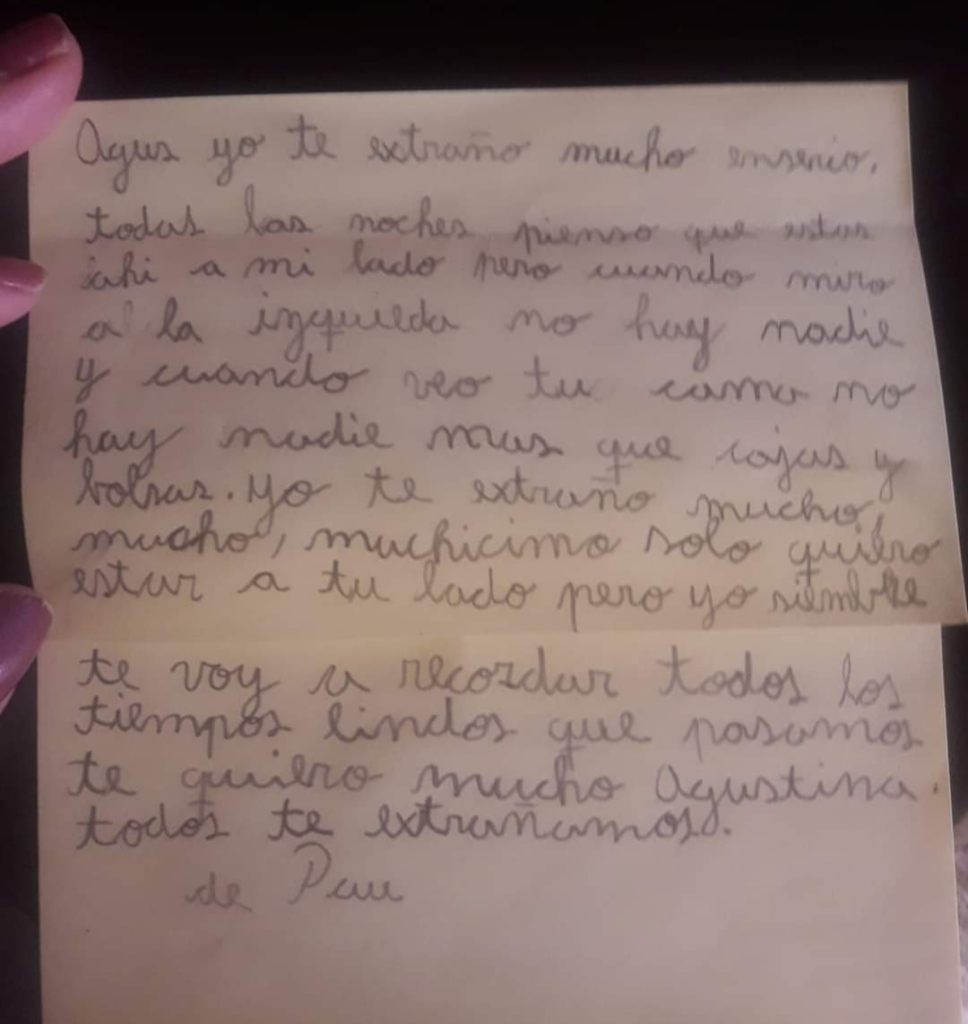 Agus yo te extraño mucho enserio.
todas las noches pienso que estas
ahi a mi lado pero cuando miro
a la izquieda no hay nadie
y cuando veo tu cama no
hay nadie mas que cajas y
bolsas. yo te extraño mucho,
mucho, muchicimo solo quiero
estar a tu lado pero yo siembre
te voy a recordar todos los
tiempos lindos que pasamos
te quiero mucho Agustina.
todos te extrañamos.
de Pau